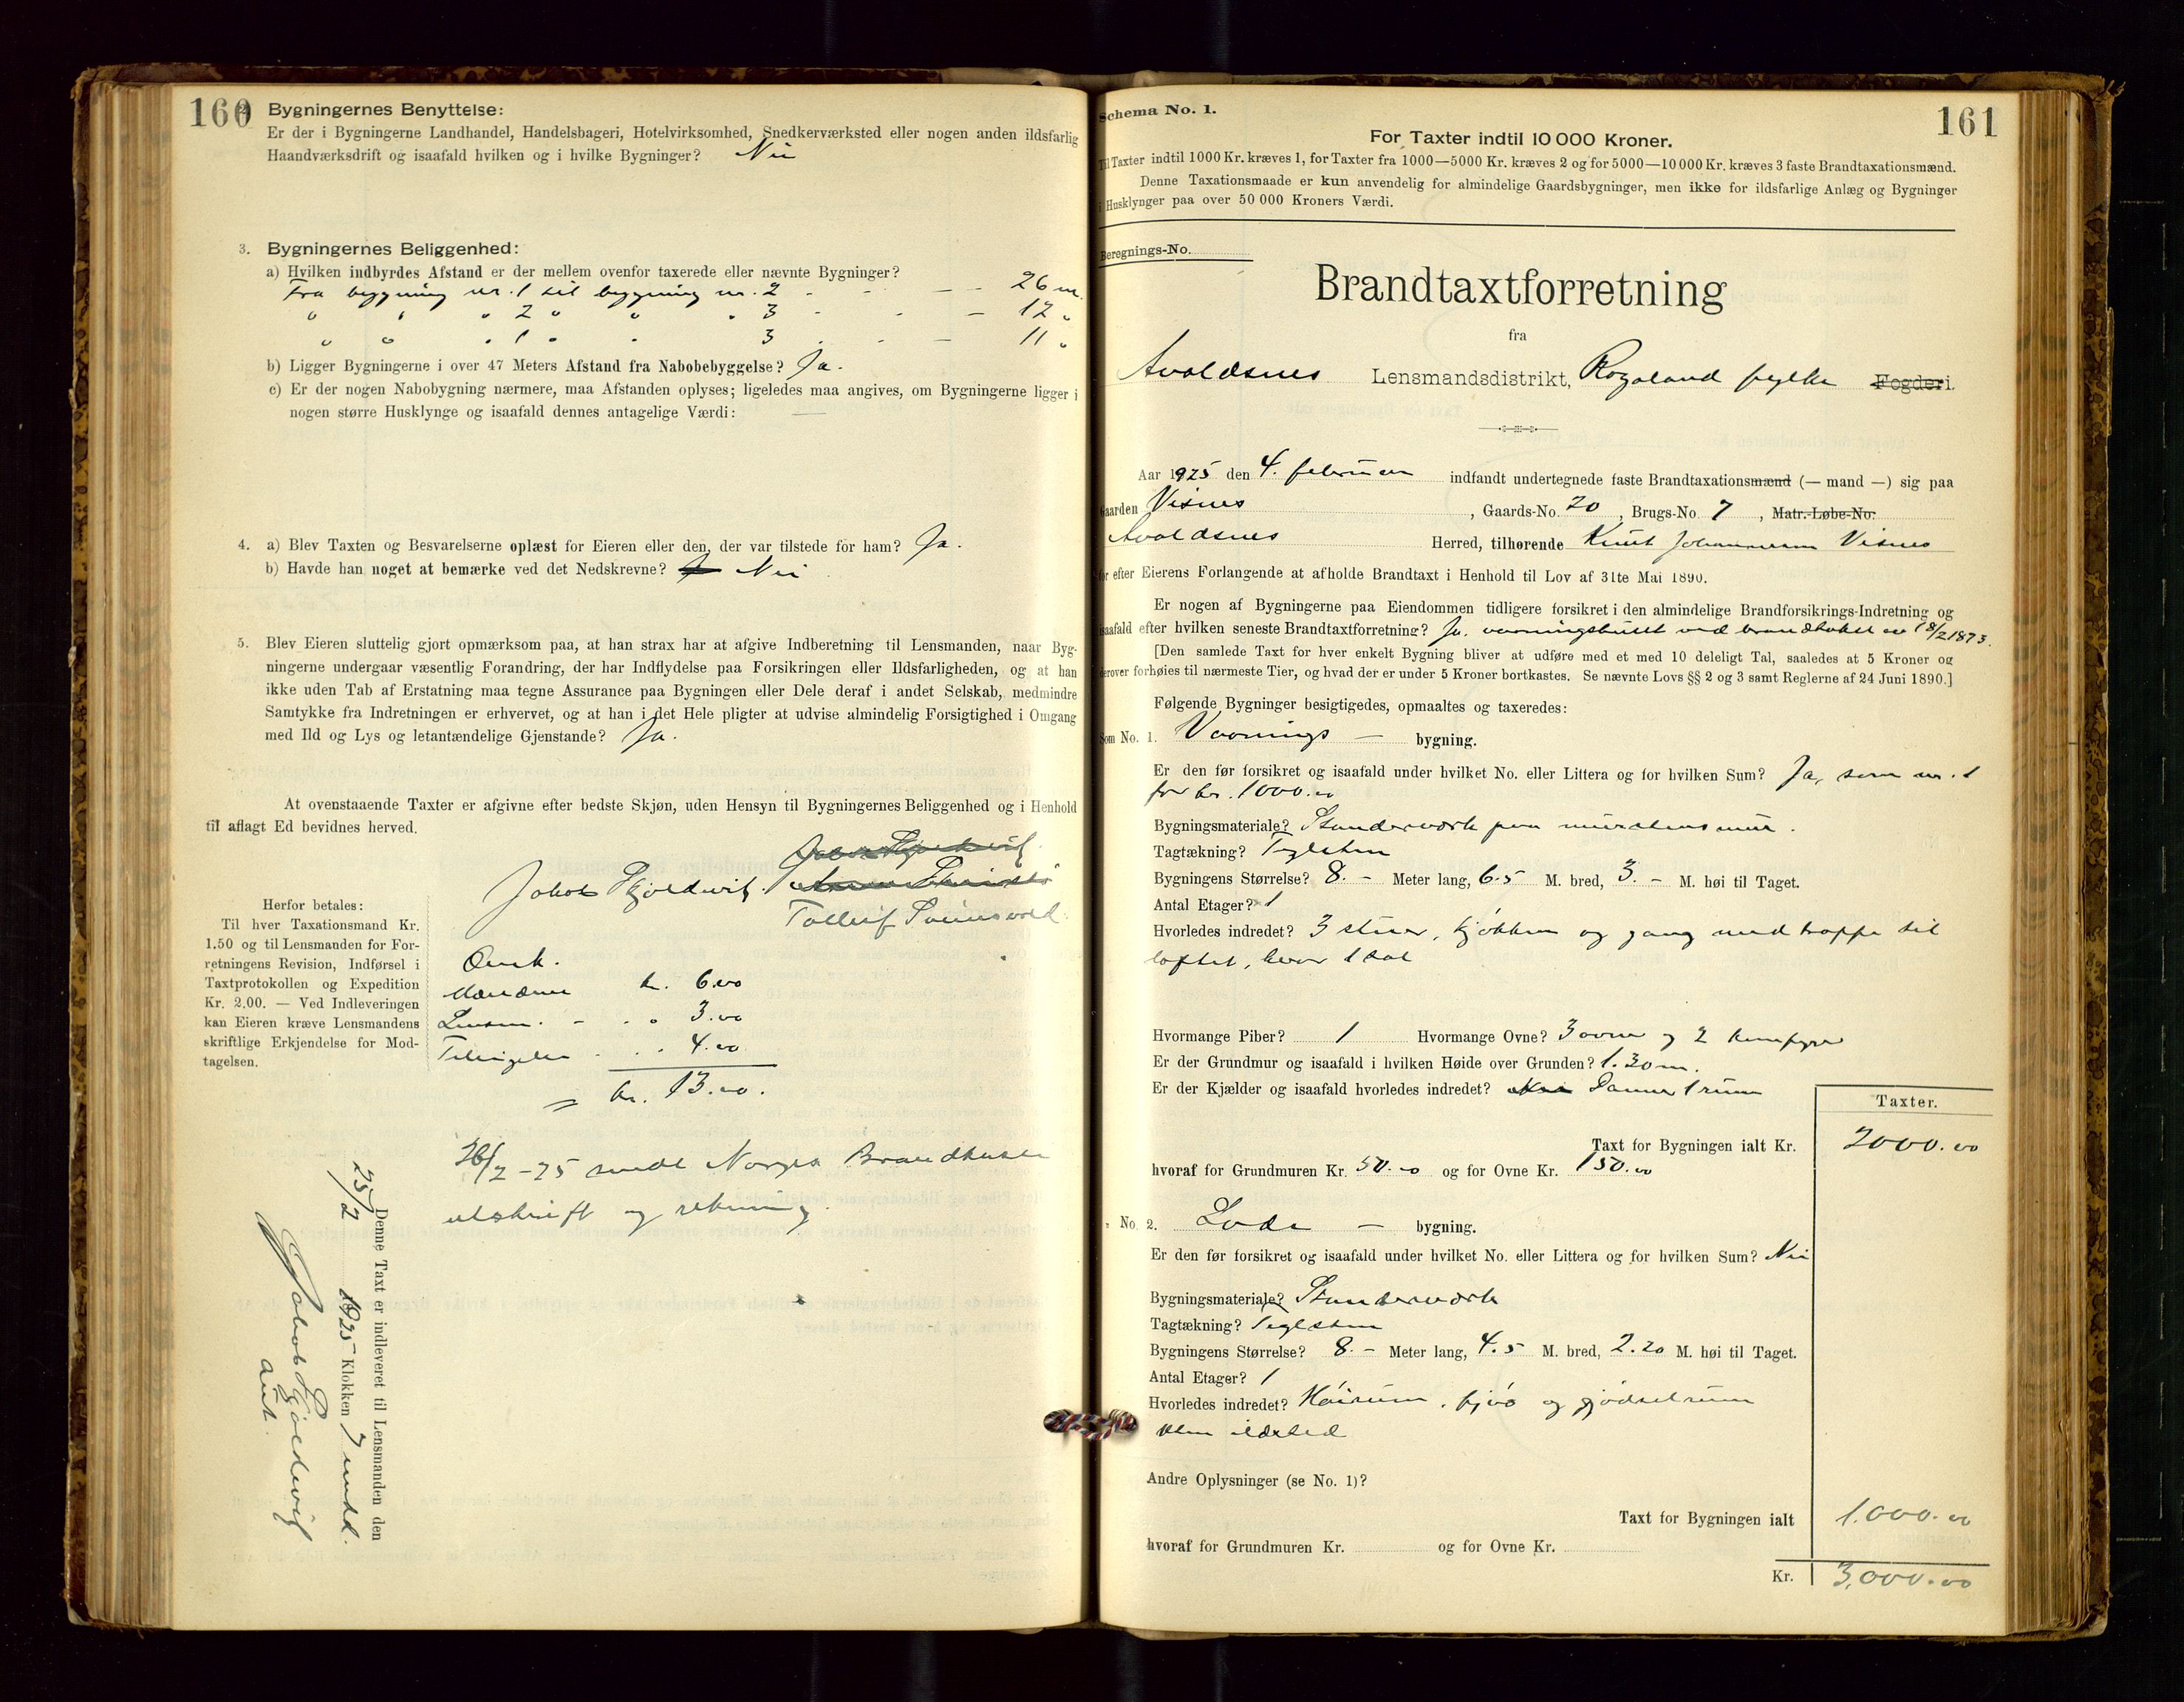 160
2. Bygningernes Benyttelse:
Er der i Bygningerne Landhandel, Handelsbageri, Hotelvirksomhed, Snedkerværksted eller nogen anden ildsfarlig
Haandværksdrift og isaafald hvilken og i hvilke Bygninger? Nei
3. Bygningernes Beliggenhed:
a) Hvilken indbyrdes Afstand er der mellem ovenfor taxerede eller nævnte Bygninger?
Fra bygning nr. 1 til bygning nr. 2 - - - - 26 m.
" " " 2 " " " 3 - - - 12 "
" " " 1 " " 3 - - - 11 "
b) Ligger Bygningerne i over 47 Meters Afstand fra Nabobebyggelse? Ja.
c) Er der nogen Nabobygning nærmere, maa Afstanden oplyses; ligeledes maa angives, om Bygningerne ligger i
nogen større Husklynge og isaafald dennes antagelige Værdi: —
4. a) Blev Taxten og Besvarelserne oplæst for Eieren eller den, der var tilstede for ham? Ja.
b) Havde han noget at bemærke ved det Nedskrevne? Nei
5. Blev Eieren sluttelig gjort opmærksom paa, at han strax har at afgive Indberetning til Lensmanden, naar Byg-
ningerne undergaar væsentlig Forandring, der har Indflydelse paa Forsikringen eller Ildsfarligheden, og at han
ikke uden Tab af Erstatning maa tegne Assurance paa Bygningen eller Dele deraf i andet Selskab, medmindre
Samtykke fra Indretningen er erhvervet, og at han i det Hele pligter at udvise almindelig Forsigtighed i Omgang
med Ild og Lys og letantændelige Gjenstande? Ja.
At ovenstaaende Taxter er afgivne efter bedste Skjøn, uden Hensyn til Bygningernes Beliggenhed og i Henhold
til aflagt Ed bevidnes herved.
Jakob Skjoldevig.
Tolleif Sveinsvold
Herfor betales:
Til hver Taxationsmand Kr.
1.50 og til Lensmanden for For-
retningens Revision, Indførsel i
Taxtprotokollen og Expedition
Kr. 2.00. — Ved Indleveringen
kan Eieren kræve Lensmandens
skriftlige Erkjendelse for Mod-
tagelsen.
Omk.
Mændene kr. 6.00
Lensm. - - " 3.00
4.00
= kr. 13.00.
26/2-25 sendt Norges Brandkasse
utskrift og rekning.
Denne Taxt er indleveret til Lensmanden den
25/2 1925 Klokken 7 midd.
Jakob Skjoldevig
aut.
161
Schema No. 1.
For Taxter indtil 10 000 Kroner.
Til Taxter indtil 1000 Kr. kræves 1, for Taxter fra 1000—5000 Kr. kræves 2 og for 5000—10 000 Kr. kræves 3 faste Brandtaxationsmænd.
Denne Taxationsmaade er kun anvendelig for almindelige Gaardsbygninger, men ikke for ildsfarlige Anlæg og Bygninger
i Husklynger paa over 50 000 Kroners Værdi.
Beregnings-No.
Brandtaxtforretning
fra
Avaldsnes Lensmandsdistrikt, Rogaland fylke Fogderi.
Aar 1925 den 4. februar indfandt undertegnede faste Brandtaxationsmænd (— mand —) sig paa
Gaarden Visnes, Gaards-No. 20, Brugs-No. 7, Matr.-Løbe-No.
Avaldsnes Herred, tilhørende Knut Johannessen Visnes
for efter Eierens Forlangende at afholde Brandtaxt i Henhold til Lov af 31te Mai 1890.
Er nogen af Bygningerne paa Eiendommen tidligere forsikret i den almindelige Brandforsikrings-Indretning og
isaafald efter hvilken seneste Brandtaxtforretning? Ja. vaaningshuset ved brandtakst av 18/2 1873.
[Den samlede Taxt for hver enkelt Bygning bliver at udføre med et med 10 deleligt Tal, saaledes at 5 Kroner og
derover forhøies til nærmeste Tier, og hvad der er under 5 Kroner bortkastes. Se nævnte Lovs §§ 2 og 3 samt Reglerne af 24 Juni 1890.]
Følgende Bygninger besigtigedes, opmaaltes og taxeredes:
Som No. 1. Vaanings — bygning.
Er den før forsikret og isaafald under hvilket No. eller Littera og for hvilken Sum? Ja, som nr. 1
for kr. 1000.00
Bygningsmateriale? Standerverk paa murstensmur.
Tagtækning? Teglsten
Bygningens Størrelse? 8.- Meter lang, 6.5 M. bred, 3.- M. høi til Taget.
Antal Etager? 1
Hvorledes indredet? 3 stuer, kjøkken og gang med trappe til
loftet, hvor 1 sal
Hvormange Piber? 1 Hvormange Ovne? 3 ovne og 2 komfyrer
Er der Grundmur og isaafald i hvilken Høide over Grunden? 1.30 m.
Er der Kjælder og isaafald hvorledes indredet? Danner 1 rum
Taxter.
Taxt for Bygningen ialt Kr. 2000.00
hvoraf for Grundmuren Kr. 50.00 og for Ovne Kr. 150.00
" No. 2. Lade — bygning.
Er den før forsikret og isaafald under hvilket No. eller Littera og for hvilken Sum? Nei
Bygningsmateriale? Standerverk
Tagtækning? Teglsten
Bygningens Størrelse? 8.- Meter lang, 4.5 M. bred, 2.20 M. høi til Taget.
Antal Etager? 1
Hvorledes indredet? Høirum, fjøs og gjødselrum
uten ildsted
Andre Oplysninger (se No. 1)?
Taxt for Bygningen ialt 1.000.00
hvoraf for Grundmuren Kr. og for Ovne Kr.
Kr. 3,000.00